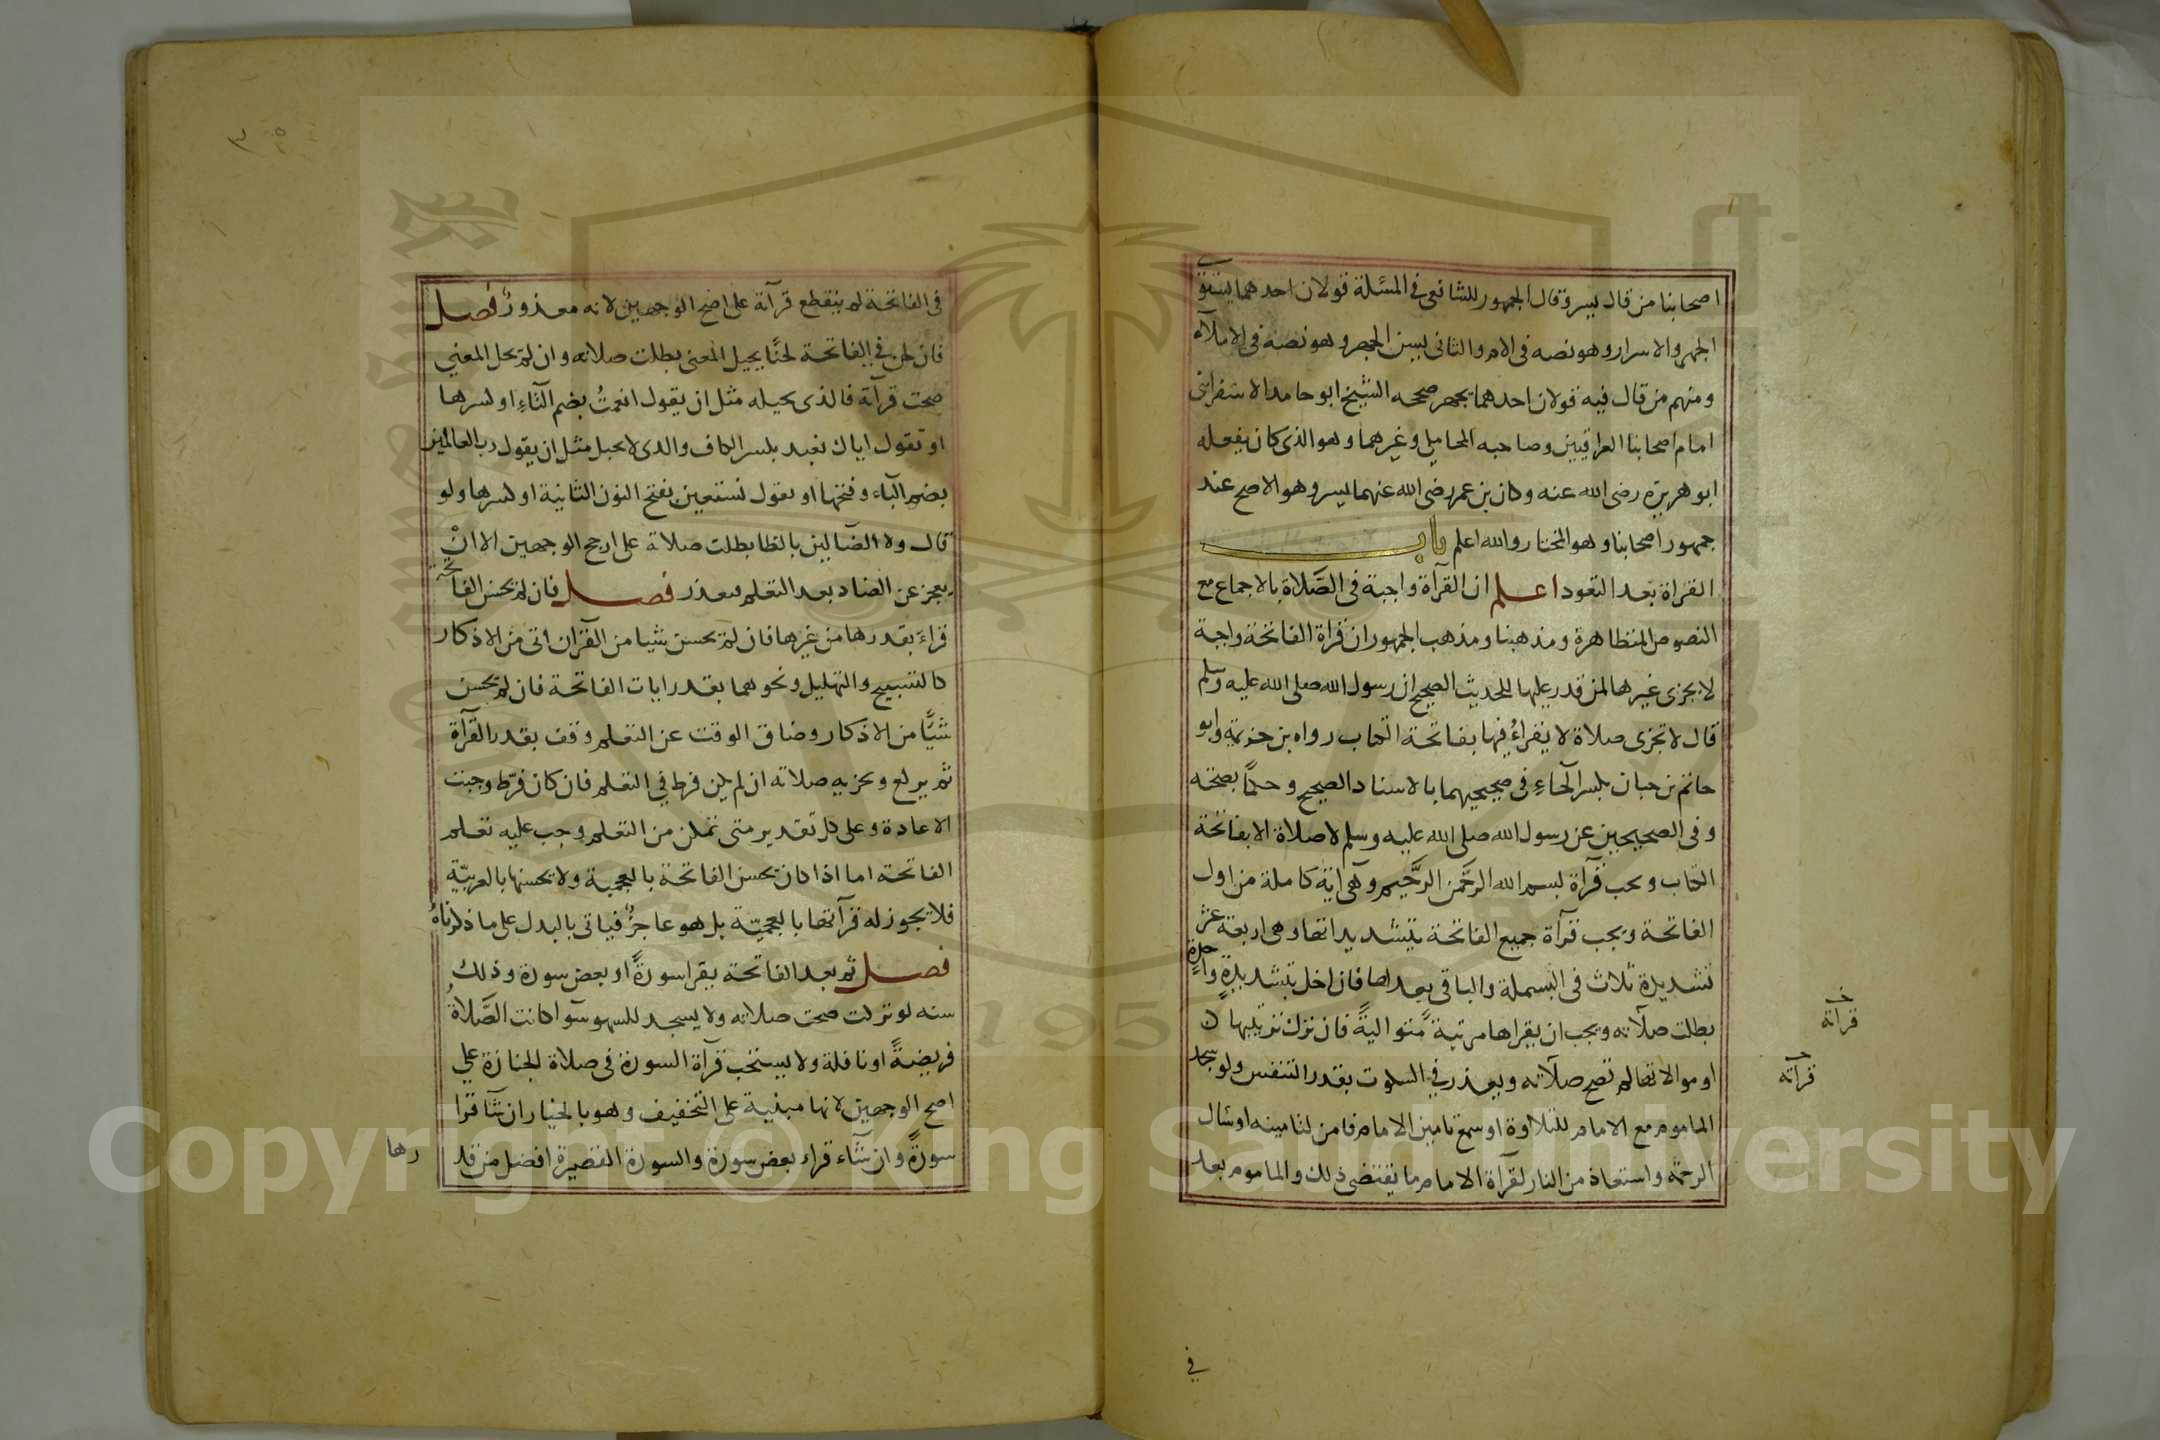 اصحابنا من قال يسر وقال الجمهور للشافعى فى المسئلة قولان احدهما يستوى
الجهر والاسرار وهو نصه فى الام والثانى يسن الجهر وهو نصه فى الاملآء
ومنهم من قال فيه قولان احدهما يجهر صححه الشيخ ابو حامد الاسفراينى
امام اصحابنا العراقيين وصاحبه المحاملى وغيرهما وهو الذى كان يفعله
ابو هريرة رضى الله عنه وكان بن عمر رضى الله عنهما يسر وهو الاصح عند
جمهور اصحابنا وهو المختار والله اعلم باب
القراة بعد التعود اعلم ان القرآة واجبة فى الصَّلاة بالاجماع مع
النصوص المتظاهرة ومذهبنا ومذهب الجمهور ان قراة الفاتحة واجبة
لا يجزى غيرها لمن قدر عليها للحديث الصحيح ان رسول الله صلى الله عليه وسلم
قال لا تجزى صلاة لا يقراءُ فيها بفاتحة الكتاب رواه بن خزيمة وابو
حاتم بن حبان بكسر الحآءِ فى صحيحيهما بالاسناد الصحيح وحكمًا بصحته
وفى الصحيحين عن رسول الله صلى الله عليه وسلم لا صلاة الا بفاتحة
الكتاب ويجب قرآة بسم الله الرَّحمن الرَّحيم وهى اية كاملة من اول
الفاتحة ويجب قرآة جميع الفاتحة بتشديداتها وهى اربعة عشر
تشديدة ثلاث فى البسملة والباقى بعدها فان اخل بتشديدةٍ واحدةٍ
بطلت صلآته ويجب ان يقراها مرتبة متواليةً فان ترك ترتيبها
او موالاتها لم تصح صلآته ويعذر فى السكوت بقدر التنفس ولو سجد
الماموم مع الامام للتلاوة او سمع تامين الامام فامن لتامينه او سال
الرحمة واستعاذ من النار لقرآة الامام ما يقتضى ذلك والماموم بعد
قراته
قرآته
فى
فى الفاتحة لم ينقطع قرآة على اصح الوجهين لانه معذورٌ فصل
فان لحن فى الفاتحة لحنًا يحيل المعنى بطلت صلاته وان لم يحل المعنى
صحت قرآة فالذى يحيله مثل ان يقول انعمتُ بضم التآءِ او كسرها
او تقول اياك نعبد بكسر الكاف والذى لا يحيل مثل ان يقول رب العالمين
بضم البآء وفتحها او يقول نستعين بفتح النون الثانية او كسرها ولو
قال ولا الضآلين بالظا بطلت صلاة على ارجح الوجهين الا انْ
يعجز عن الضاد بعد التعلم فيعذر فصل فان لم يحسن الفاتحة
قراءَ بقدرها من غيرها فان لم يحسن شيا من القران اتى من الاذكار
كالتسبيح والتهليل ونحوهما بقدر ايات الفاتحة فان لم يحسن
شيًا من الاذكار وضاق الوقت عن التعلم وقف بقدر القرآة
ثم يركع وتجزيه صلاته ان لم يكن فرط فى التعلم فان كان فرّط وجبت
الاعادة وعلى كل تقدير متى تمكن من التعلم وجب عليه تعلم
الفاتحة اما اذا كان يحسن الفاتحة بالعجمية ولا يحسنها بالعربيّة
فلا يجوز له قرآتها بالعجميّة بل هو عاجزٌ فياتى بالبدل على ما ذكرناهُ
فصل ثم بعد الفاتحة يقرا سورةً او بعض سورة وذلك
سنه لو تركت صحت صلاته ولا يسجد للسهو سوآ كانت الصَّلاةُ
فريضةً او نافلة ولا يستحب قرآة السورة فى صلاة الجنازة على
اصح الوجهين لانها مبنية على التخفيف وهو بالخيار ان شآ قرا
سورةً وان شآء قراء بعض سورة والسورة القصيرة افضل من قد
رها
Copyright © King Saud University
1957